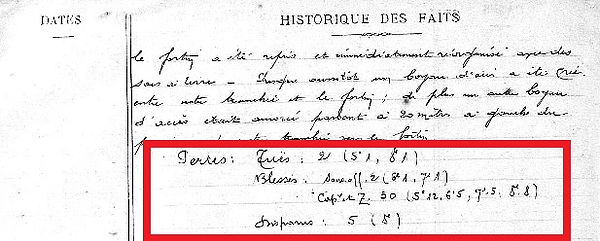 DATES
HISTORIQUE DES FAITS
le fortin a été repris et immédiatement réorganisé avec des
sacs à terre – Presque aussitôt un boyau d'accès a été créé
entre notre tranchée et le fortin ; de plus un autre boyau
d'accès était amorcé partant à 20 mètres à gauche du
tranchée vers le fortin
Pertes : Tués : 2 (5e 1, 8e 1)
Blessés : Sous-off. 2 (8e 1, 7e 1)
Cap. et 30 (5e 12, 6e 5, 7e 5, 8e 8)
Disparus : 5 (8e)